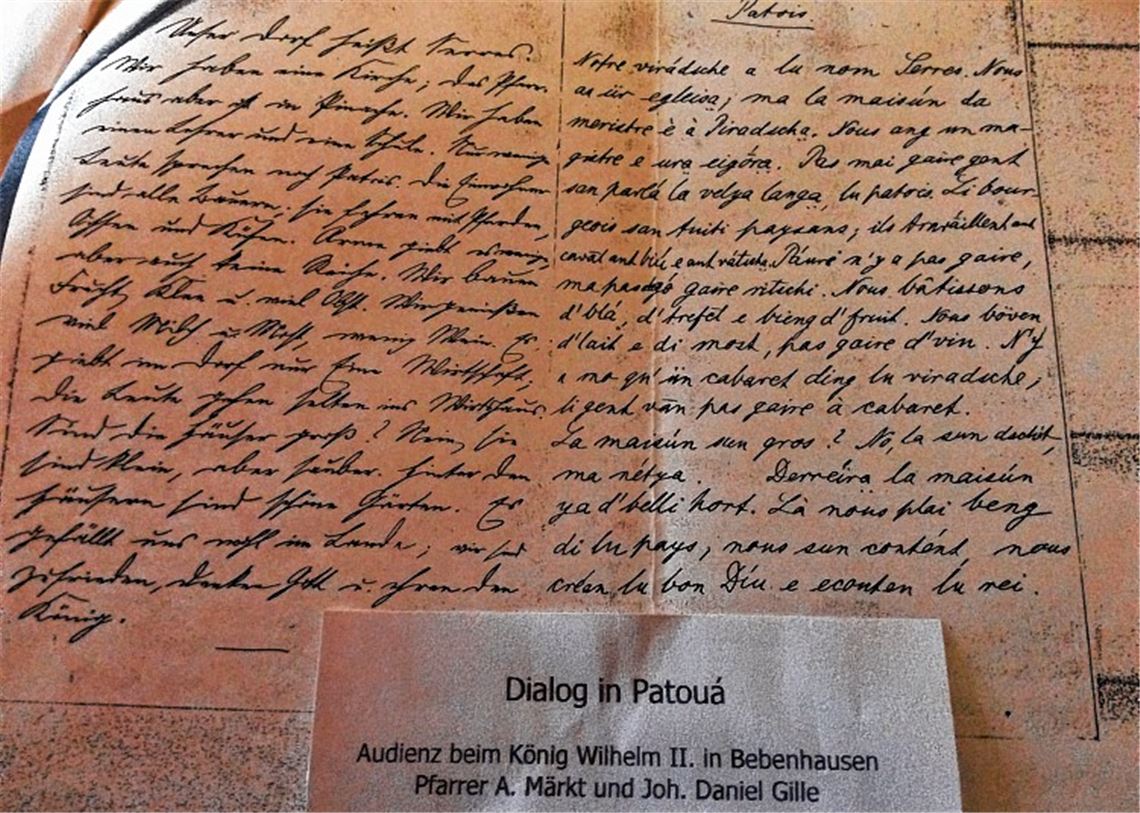 Unser Dorf heißt Serres.
Wir haben eine Kirche; das Pfarr-
haus aber ist in Pinache. Wir haben
einen Lehrer und eine Schule. Nur wenige
Leute sprechen noch Patois. Die Einwohner
sind alle Bauern; sie fahren mit Pferden,
Ochsen und Kühen. Arme giebt es wenig,
aber auch keine Reiche. Wir bauen
Frucht, Klee u. viel Obst. Wir genießen
viel Milch u. Most, wenig Wein. Es
giebt im Dorf nur Eine Wirtschaft;
die Leute gehen selten ins Wirtshaus.
Sind die Häuser groß? Nein, sie
sind klein, aber sauber. Hinter den
Häusern sind schöne Gärten. Es
gefällt uns wohl im Lande; wir sind
zufrieden, danken Gott u. ehren den
König.
Patois.
Notre virádsche a lu nom Serres. Nous
an ür egleisa; ma la maisún da
menistre è à Piradscha. Nous ang un ma-
gistre e ura eigôra. Pas mai gaire gent
san parlá la velya langa, lu patois. Li bour-
geois san tuiti paysans; ils travaillent ant
cavàl ant biú e ant vátscha. Páure n'y a pas gaire,
ma pas gaire ritschi. Nous bâtissons
d'blá, d'trefel e bieng d'fruit. Nous bôven
d'lait e di most, pas gaire d'vin. N'y
a mo qu'ün cabaret ding lu viradsche;
li gent vān pas gaire à cabaret.
La maisún sun gros? Nó, la sun dsolit,
ma nétya. Derréira la maisún
ya d'belli hort. Là nous plai beng
di lu pays, nous sun contént, nous
créan lu bon Díu e econten lu rei.
Dialog in Patouá
Audienz beim König Wilhelm II. in Bebenhausen
Pfarrer A. Märkt und Joh. Daniel Gille